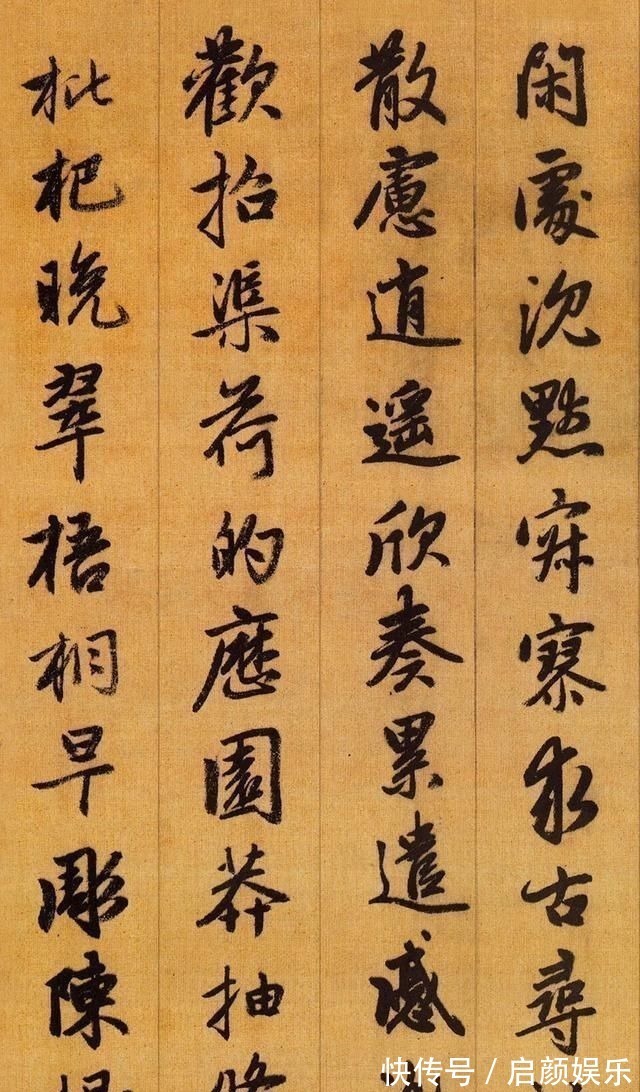 閑處沈默寂寥求古尋
散慮逍遙欣奏累遣慼
歡招渠荷的歷園莽抽
枇杷晚翠梧桐早彫陳
快传号 / 启颜娱乐